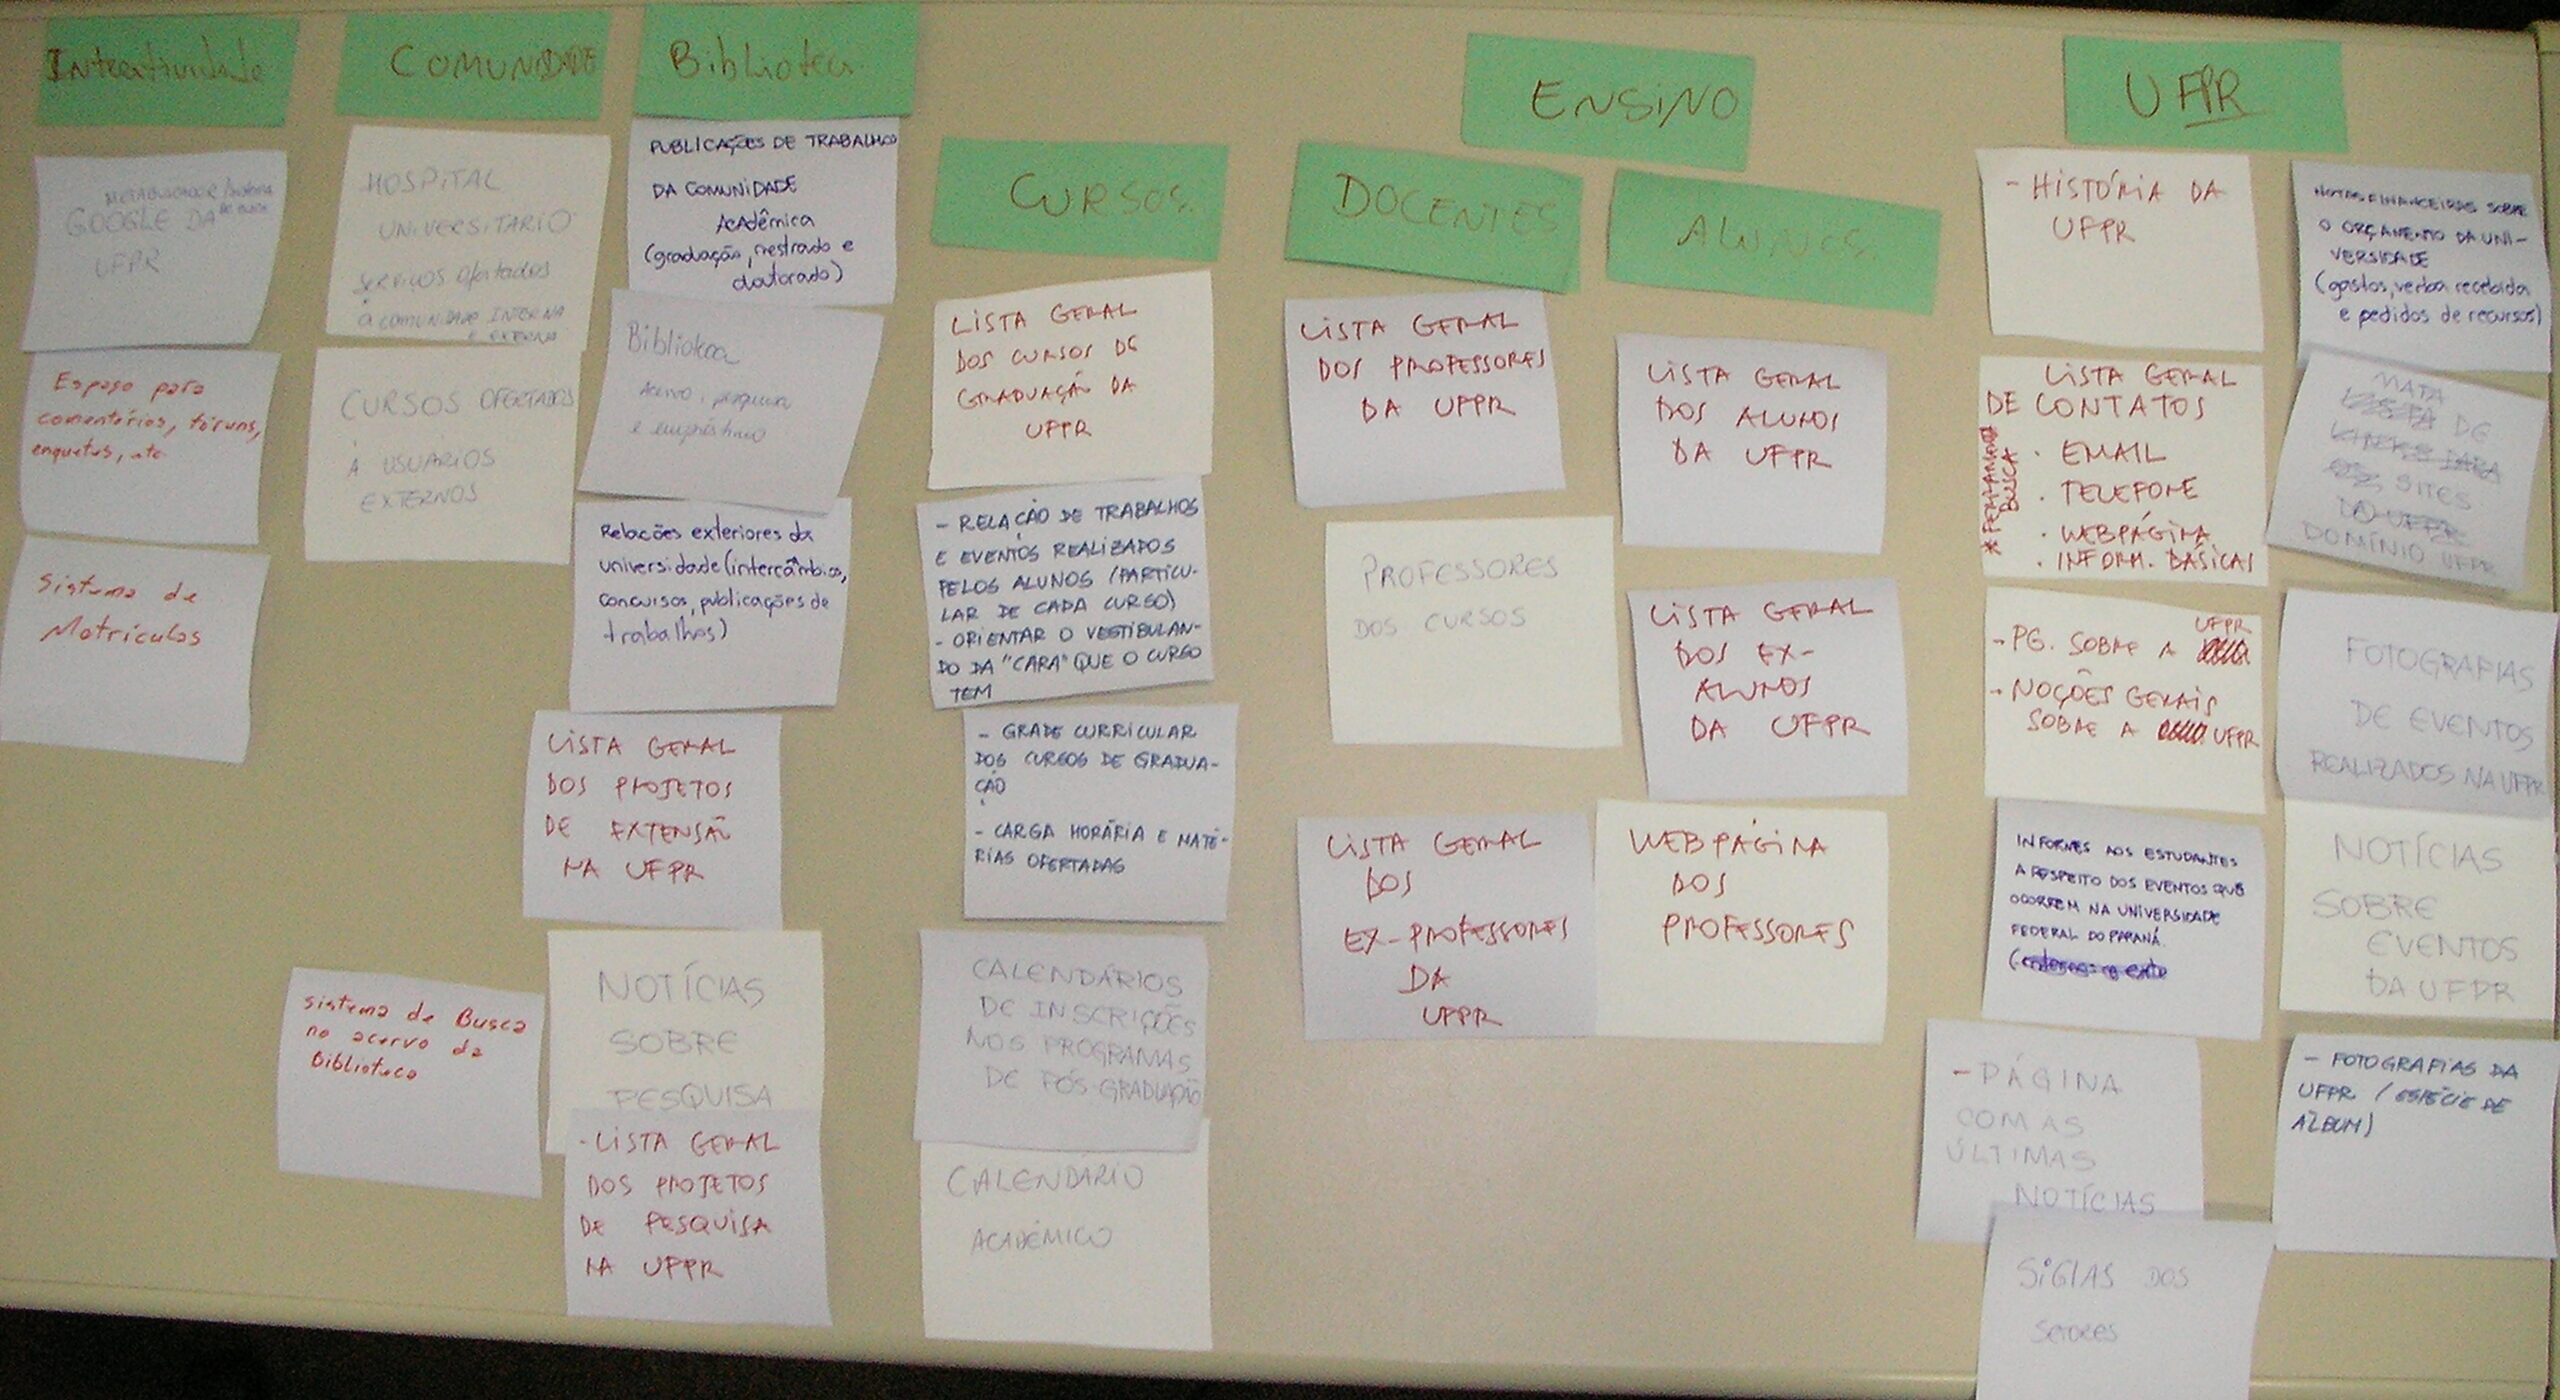 Interatividade
METABUSCADOR / Sistema
DE BUSCA
GOOGLE DA
UFPR
Espaço para
comentários, fóruns,
enquetes, etc
Sistema de
Matrículas
COMUNIDADE
HOSPITAL
UNIVERSITÁRIO
SERVIÇOS ofertados
à COMUNIDADE INTERNA
E EXTERNA
CURSOS OFERTADOS
À USUÁRIOS
EXTERNOS
sistema de Busca
no acervo da
Biblioteca
Biblioteca
PUBLICAÇÕES DE TRABALHOS
DA COMUNIDADE
Acadêmica
(graduação, mestrado e
doutorado)
Biblioteca
Acervo, pesquisa
e empréstimo
Relações exteriores da
universidade (intercâmbios,
concursos, publicações de
trabalhos)
LISTA GERAL
DOS PROJETOS
DE EXTENSÃO
NA UFPR
NOTÍCIAS
SOBRE
PESQUISA
- LISTA GERAL
DOS PROJETOS
DE PESQUISA
NA UFPR
ENSINO
CURSOS
LISTA GERAL
DOS CURSOS DE
GRADUAÇÃO DA
UFPR
- RELAÇÃO DE TRABALHOS
E EVENTOS REALIZADOS
PELOS ALUNOS (PARTICU-
LAR DE CADA CURSO)
- ORIENTAR O VESTIBULAN-
DO DA "CARA" QUE O CURSO
TEM
- GRADE CURRICULAR
DOS CURSOS DE GRADUA-
ÇÃO
- CARGA HORÁRIA E MATÉ-
RIAS OFERTADAS
CALENDÁRIOS
DE INSCRIÇÕES
NOS PROGRAMAS
DE PÓS-GRADUAÇÃO
CALENDÁRIO
ACADÊMICO
DOCENTES
LISTA GERAL
DOS PROFESSORES
DA UFPR
PROFESSORES
DOS CURSOS
LISTA GERAL
DOS
EX-PROFESSORES
DA
UFPR
ALUNOS
LISTA GERAL
DOS ALUNOS
DA UFPR
LISTA GERAL
DOS EX-
ALUNOS
DA UFPR
WEBPÁGINA
DOS
PROFESSORES
UFPR
- HISTÓRIA DA
UFPR
LISTA GERAL
DE CONTATOS
· EMAIL
· TELEFONE
· WEBPÁGINA
· INFORM. BÁSICAS
* FERRAMENTA
BUSCA
- PG. SOBRE A UFPR
- NOÇÕES GERAIS
SOBRE A UFPR
INFORMES AOS ESTUDANTES
A RESPEITO DOS EVENTOS QUE
OCORREM NA UNIVERSIDADE
FEDERAL DO PARANÁ.
- PÁGINA
COM AS
ÚLTIMAS
NOTÍCIAS
SIGLAS DOS
Setores
NOTAS FINANCEIRAS SOBRE
O ORÇAMENTO DA UNI-
VERSIDADE
(gastos, verba recebida
e pedidos de recursos)
MAPA
LISTA DE
LINKS PARA
OS SITES
DA UFPR
DOMÍNIO UFPR
FOTOGRAFIAS
DE EVENTOS
REALIZADOS NA UFPR
NOTÍCIAS
SOBRE
EVENTOS
DA UFPR
- FOTOGRAFIAS DA
UFPR (ESPÉCIE DE
ÁLBUM)